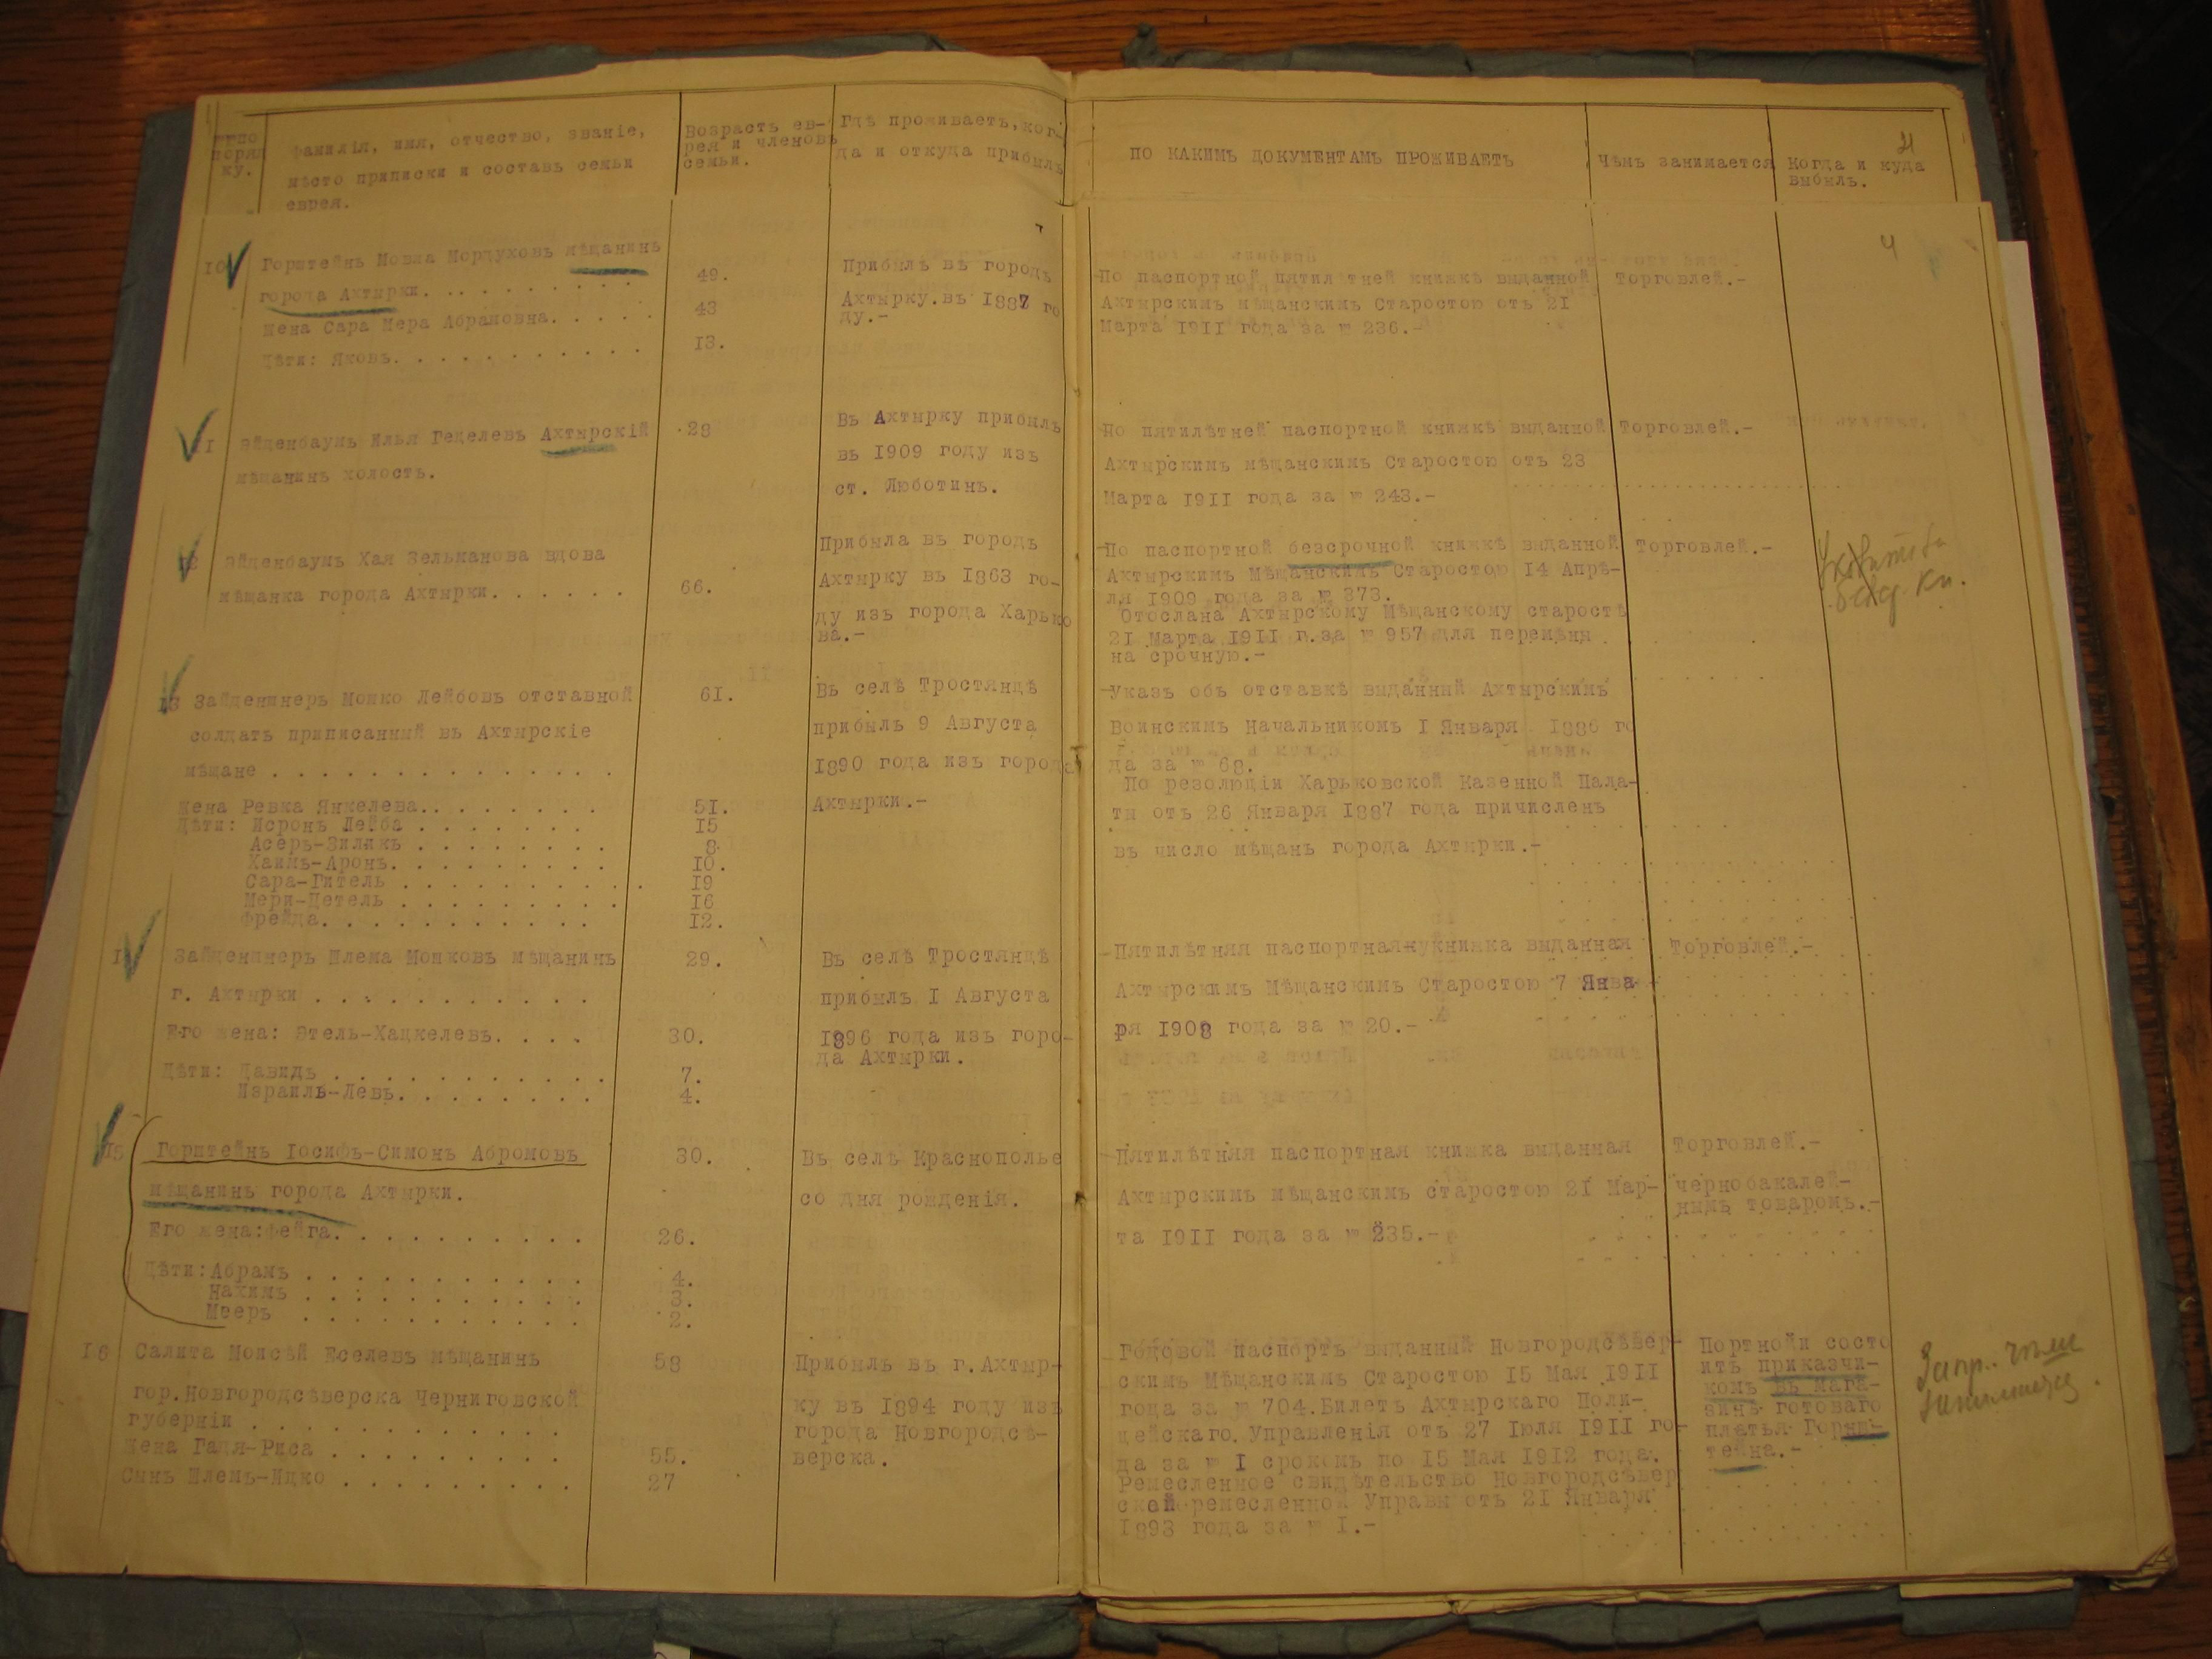 № по
поряд
ку.
Фамилія, имя, отчество, званіе,
мѣсто приписки и составъ семьи
еврея.
Возрастъ ев-
рея и членовъ
семьи.
Гдѣ проживаетъ, ког-
да и откуда прибылъ
ПО КАКИМЪ ДОКУМЕНТАМЪ ПРОЖИВАЕТЪ
Чѣмъ занимается
Когда и куда
выбылъ.
4
10
Горштейнъ Мовша Мордуховъ мѣщанинъ
города Ахтырки. . . . . . . . . . 49.
Жена Сара Мера Абрамовна. . . . . 43
Дѣти: Яковъ. . . . . . . . . . . 13.
Прибылъ въ городъ
Ахтырку.въ 1887 го
ду.-
По паспортной пятилѣтней книжкѣ выданной
Ахтырскимъ мѣщанскимъ Старостою отъ 21
Марта 1911 года за № 236.-
Торговлей.-
11
Эйденбаумъ Илья Гецелевъ Ахтырскій 28
мѣщанинъ холостъ.
Въ Ахтырку прибылъ
въ 1909 году изъ
ст. Люботинъ.
По пятилѣтней паспортной книжкѣ выданной
Ахтырскимъ мѣщанскимъ Старостою отъ 23
Марта 1911 года за № 243.-
Торговлей.-
12
Эйденбаумъ Хая Зельманова вдова
мѣщанка города Ахтырки. . . . . . 66.
Прибыла въ городъ
Ахтырку въ 1863 го-
ду изъ города Харько
ва.-
По паспортной безсрочной книжкѣ выданной
Ахтырскимъ Мѣщанскимъ Старостою 14 Апрѣ-
ля 1909 года за № 373.
Отослана Ахтырскому Мѣщанскому старостѣ
21 Марта 1911 г.за № 957 для перемѣны
на срочную.-
Торговлей.-
13 Зайденшнеръ Мошко Лейбовъ отставной 61.
солдатъ приписанный въ Ахтырскіе
мѣщане . . . . . . . . . . . . . .
Жена Ревка Янкелева.. . . . . . . 51.
Дѣти: Исронъ Лейба . . . . . . . 15
Асеръ-Зиликъ . . . . . . . . 8.
Хаимъ-Аронъ. . . . . . . . . 10.
Сара-Гитель . . . . . . . . . 19
Мери-Цетель . . . . . . . . . 16
Фрейда. . . . . . . . . . . 12.
Въ селѣ Тростянцѣ
прибылъ 9 Августа
1890 года изъ города
Ахтырки.-
Указъ объ отставкѣ выданный Ахтырскимъ
Воинскимъ Начальникомъ 1 Января 1886 го
да за № 68.
По резолюціи Харьковской Казенной Пала-
ты отъ 26 Января 1887 года причисленъ
въ число мѣщанъ города Ахтырки.-
Зайденшнеръ Шлема Мошковъ мѣщанинъ 29.
г. Ахтырки . . . . . . . . . . .
Его жена: Этель-Хацкелевъ. . . . 30.
Дѣти: Давидъ . . . . . . . . . . . 7.
Израиль-Левъ. . . . . . . . . 4.
Въ селѣ Тростянцѣ
прибылъ 1 Августа
1896 года изъ горо-
да Ахтырки.
Пятилѣтняя паспортная книжка выданная
Ахтырскимъ Мѣщанскимъ Старостою 7 Янва-
ря 1908 года за № 20.-
Торговлей.-
15 Горштейнъ Іосифъ-Симонъ Абрамовъ 30.
мѣщанинъ города Ахтырки.
Его жена:Фейга. . . . . . . . . . . 26.
Дѣти:Абрамъ . . . . . . . . . . . . 4.
Нахимъ . . . . . . . . . . . . 3.
Мееръ . . . . . . . . . . . . 2.
Въ селѣ Краснополье
со дня рожденія.
Пятилѣтняя паспортная книжка выданная
Ахтырскимъ мѣщанскимъ старостою 21 Мар-
та 1911 года за № 235.-
Торговлей.-
чернобакалей-
нымъ товаромъ.-
16 Салита Моисѣй Еселевъ мѣщанинъ 58
гор.Новгородсѣверска Черниговской
губерніи . . . . . . . . . . . . .
Жена Гадя-Риса . . . . . . . . . . 55.
Сынъ Шлемъ-Ицко . . . . . . . . . 27
Прибылъ въ г.Ахтыр-
ку въ 1894 году изъ
города Новгородсѣ-
верска.
Годовой паспортъ выданный Новгородсѣвер-
скимъ Мѣщанскимъ Старостою 15 Мая 1911
года за № 704.Билетъ Ахтырскаго Поли-
цейскаго Управленія отъ 27 Іюля 1911 го-
да за № 1 срокомъ по 15 Мая 1912 года.
Ремесленное свидѣтельство Новгородсѣвер
ской ремесленной Управы отъ 21 Января
1893 года за № 1.-
Портной и состо
итъ приказчи-
комъ въ мага-
зинѣ готоваго
платья Горш-
тейна.-